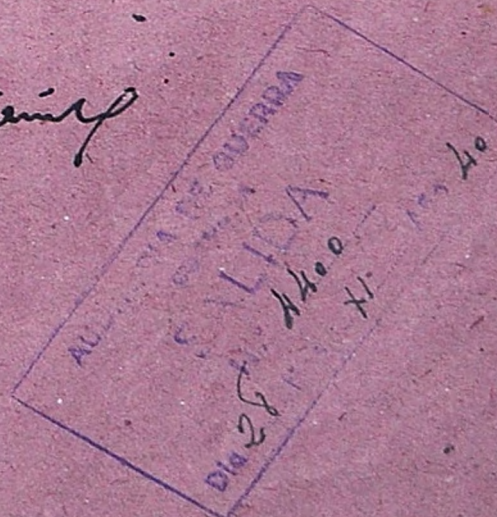 AUDITORIA DE GUERRA
SALIDA
Nº 4400
Dia 28 Mes XI Año 40